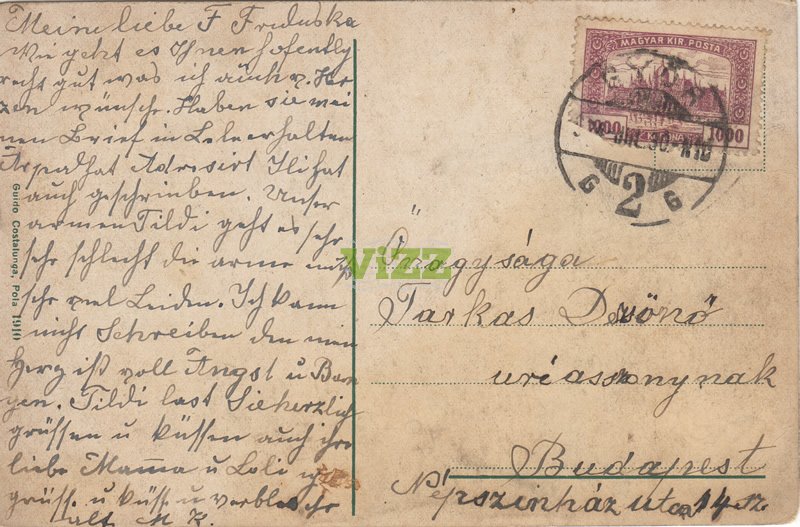 Meine liebe F Friduska
Wie geht es Ihnen hofently
recht gut was ich auch v. Her
zen wünsche. Haben sie mei
nen Brief in Lele erhalten
Arpad hat Adresirt Ili hat
auch geschrieben. Unser
armen Tildi geht es sehr
sehr schlecht die arme muß
sehr viel Leiden. Ich kann
nicht Schreiben den mein
Herz ist voll Angst u Ban
gen. Tildi last Sie herzlich
grüssen u küssen auch ihre
liebe Mamma u Loli
grüss. u küss. u verbleibe ihr
alt M K.
Guido Costalunga, Pola 1910
MAGYAR KIR. POSTA
1000 KORONA 1000
GYŐR
2
G G
vizz
Önagysága
Farkas Dezsőnő
uriasszonynak
Budapest
Népszinház utca 14 sz.